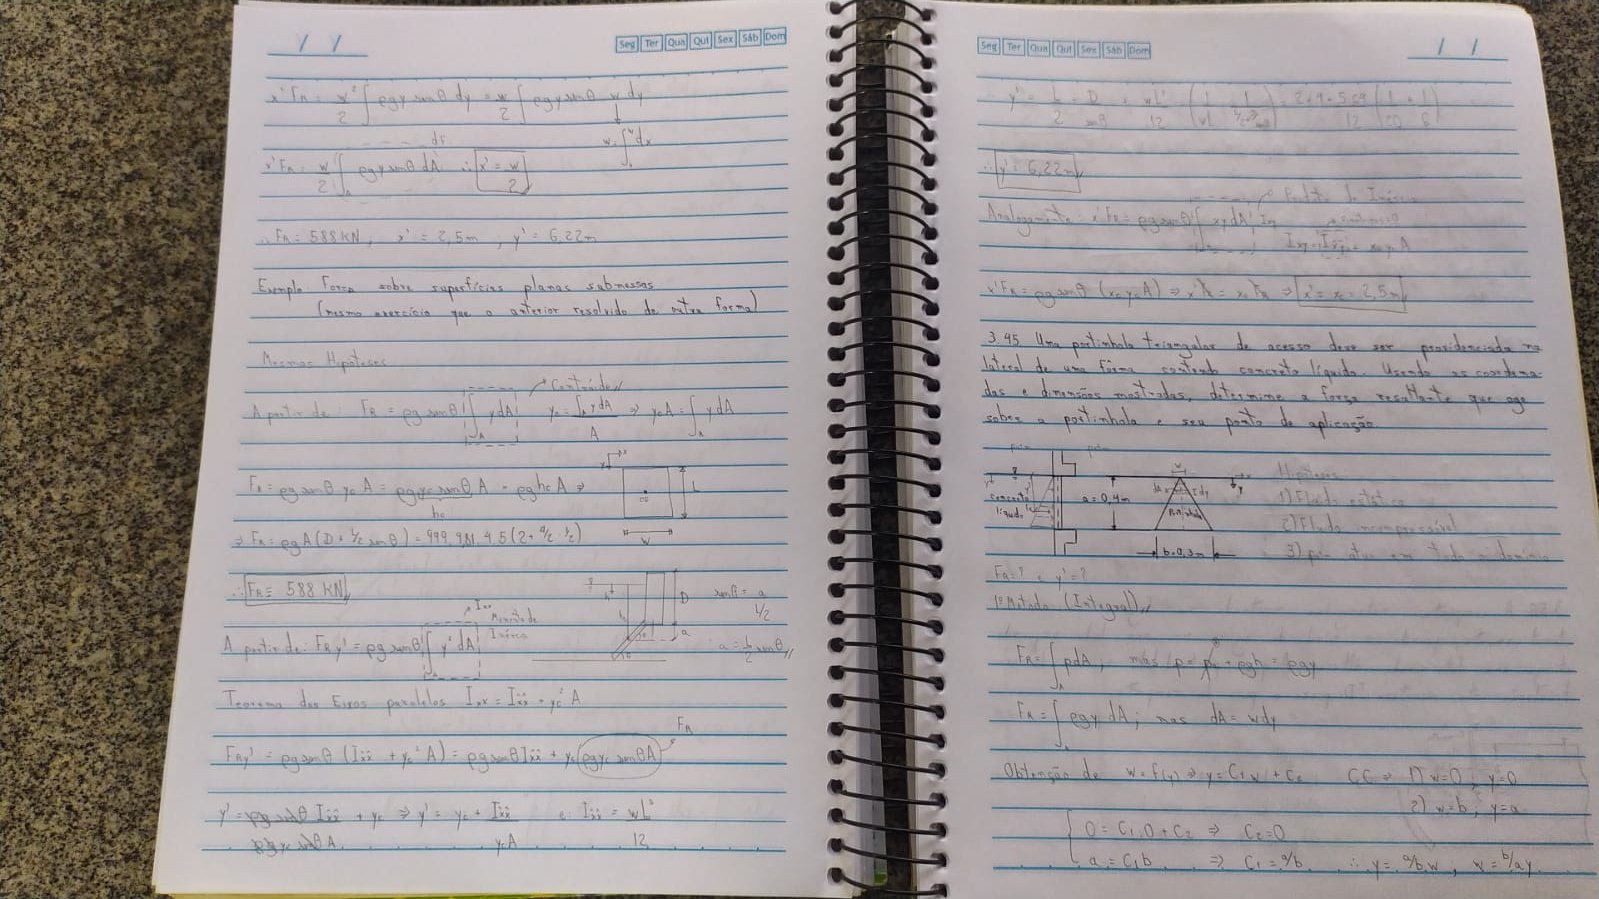 Seg Ter Qua Qui Sex Sáb Dom
x' FR = w²/2 ∫ ρgy senθ dy = w/2 ∫ ρgy senθ w dy
w = ∫ dx
dF
x' FR = w/2 ∫A ρgy senθ dA ∴ x' = w/2
∴ FR = 588 KN ; x' = 2,5m ; y' = 6,22m
Exemplo: Força sobre superfícies planas submersas
(mesmo exercício que o anterior resolvido de outra forma)
Mesmas Hipóteses
→ Centróide
A partir de: FR = ρg senθ ∫A y dA yc = ∫A y dA / A ⇒ yc A = ∫A y dA
FR = ρg senθ yc A = ρg yc senθ A = ρg hc A ⇒
hc
L
w
⇒ FR = ρg A (D + L/2 senθ) = 999 . 9,81 . 4.5 (2 + 4/2 . 1/2)
∴ FR = 588 KN
D
a
senθ = a / L/2
∴ a = L/2 senθ
→ Ixx Momento de Inércia
A partir de: FR y' = ρg senθ ∫A y² dA
Teorema dos Eixos paralelos Ixx = Ix̂x̂ + yc² A
FR y' = ρg senθ (Ix̂x̂ + yc² A) = ρg senθ Ix̂x̂ + yc (ρg yc senθ A) → FR
y' = ρg senθ Ix̂x̂ / ρg yc senθ A + yc ⇒ y' = yc + Ix̂x̂ / yc A e: Ix̂x̂ = wL³ / 12
Seg Ter Qua Qui Sex Sáb Dom
∴ y' = 6,22m
→ Produto de Inércia
Analogamente: x' FR = ρg senθ ∫ xy dA
x' FR = ρg senθ (xc yc A) ⇒ x' FR = xc FR ⇒ x' = xc = 2,5m
3.45. Uma portinhola triangular de acesso deve ser providenciada na
lateral de uma fôrma contendo concreto líquido. Usando as coordena-
das e dimensões mostradas, determine a força resultante que age
sobre a portinhola e seu ponto de aplicação.
Hipóteses
concreto
líquido
a = 0,4m
w
dy
Portinhola
y
b = 0,3m
1) Fluido estático
2) Fluido incompressível
3) patm atua em todo o domínio
FR = ? e y' = ?
1º Método (Integral)
FR = ∫A p dA, mas p = p0 + ρgh = ρgy
FR = ∫A ρgy dA; mas dA = w dy
Obtenção de w = f(y) ⇒ y = C1 w + C2 CC ⇒ 1) w=0, y=0
2) w=b, y=a
0 = C1.0 + C2 ⇒ C2 = 0
a = C1 b ⇒ C1 = a/b ∴ y = a/b w , w = b/a y